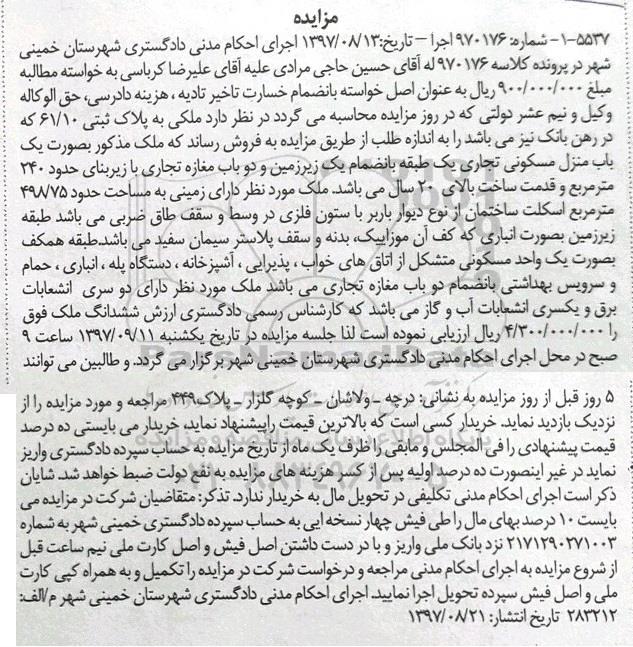 مزایده
۱-۵۵۳۷- شماره: ۹۷۰۱۷۶ اجرا – تاریخ:۱۳۹۷/۰۸/۱۳ اجرای احکام مدنی دادگستری شهرستان خمینی
شهر در پرونده کلاسه ۹۷۰۱۷۶ له آقای حسین حاجی مرادی علیه آقای علیرضا کرباسی به خواسته مطالبه
مبلغ ۹۰۰/۰۰۰/۰۰۰ ریال به عنوان اصل خواسته بانضمام خسارت تاخیر تادیه ، هزینه دادرسی، حق الوکاله
وکیل و نیم عشر دولتی که در روز مزایده محاسبه می گردد در نظر دارد ملکی به پلاک ثبتی ۶۱/۱۰ که
در رهن بانک نیز می باشد را به اندازه طلب از طریق مزایده به فروش رساند که ملک مذکور بصورت یک
باب منزل مسکونی تجاری یک طبقه بانضمام یک زیرزمین و دو باب مغازه تجاری با زیربنای حدود ۲۴۰
مترمربع و قدمت ساخت بالای ۲۰ سال می باشد. ملک مورد نظر دارای زمینی به مساحت حدود ۴۹۸/۷۵
مترمربع اسکلت ساختمان از نوع دیوار باربر با ستون فلزی در وسط و سقف طاق ضربی می باشد طبقه
زیرزمین بصورت انباری که کف آن موزاییک، بدنه و سقف پلاستر سیمان سفید می باشد.طبقه همکف
بصورت یک واحد مسکونی متشکل از اتاق های خواب ، پذیرایی ، آشپزخانه ، دستگاه پله ، انباری ، حمام
و سرویس بهداشتی بانضمام دو باب مغازه تجاری می باشد ملک مورد نظر دارای دو سری انشعابات
برق و یکسری انشعابات آب و گاز می باشد که کارشناس رسمی دادگستری ارزش ششدانگ ملک فوق
را ۴/۳۰۰/۰۰۰/۰۰۰ ریال ارزیابی نموده است لذا جلسه مزایده در تاریخ یکشنبه ۱۳۹۷/۰۹/۱۱ ساعت ۹
صبح در محل اجرای احکام مدنی دادگستری شهرستان خمینی شهر برگزار می گردد. و طالبین می توانند
۵ روز قبل از روز مزایده به نشانی: درچه – ولاشان – کوچه گلزار – پلاک۴۴۹ مراجعه و مورد مزایده را از
نزدیک بازدید نماید. خریدار کسی است که بالاترین قیمت راپیشنهاد نماید، خریدار می بایستی ده درصد
قیمت پیشنهادی را فی المجلس و مابقی را ظرف یک ماه از تاریخ مزایده به حساب سپرده دادگستری واریز
نماید در غیر اینصورت ده درصد اولیه پس از کسر هزینه های مزایده به نفع دولت ضبط خواهد شد. شایان
ذکر است اجرای احکام مدنی تکلیفی در تحویل مال به خریدار ندارد. تذکر: متقاضیان شرکت در مزایده می
بایست ۱۰ درصد بهای مال را طی فیش چهار نسخه ایی به حساب سپرده دادگستری خمینی شهر به شماره
۲۱۷۱۲۹۰۲۷۱۰۰۳ نزد بانک ملی واریز و با در دست داشتن اصل فیش و اصل کارت ملی نیم ساعت قبل
از شروع مزایده به اجرای احکام مدنی مراجعه و درخواست شرکت در مزایده را تکمیل و به همراه کپی کارت
ملی و اصل فیش سپرده تحویل اجرا نمایید. اجرای احکام مدنی دادگستری شهرستان خمینی شهر م/الف:
۲۸۳۲۱۲ تاریخ انتشار: ۱۳۹۷/۰۸/۲۱